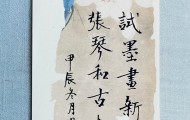 試墨畫新
張琴和古
甲辰冬月